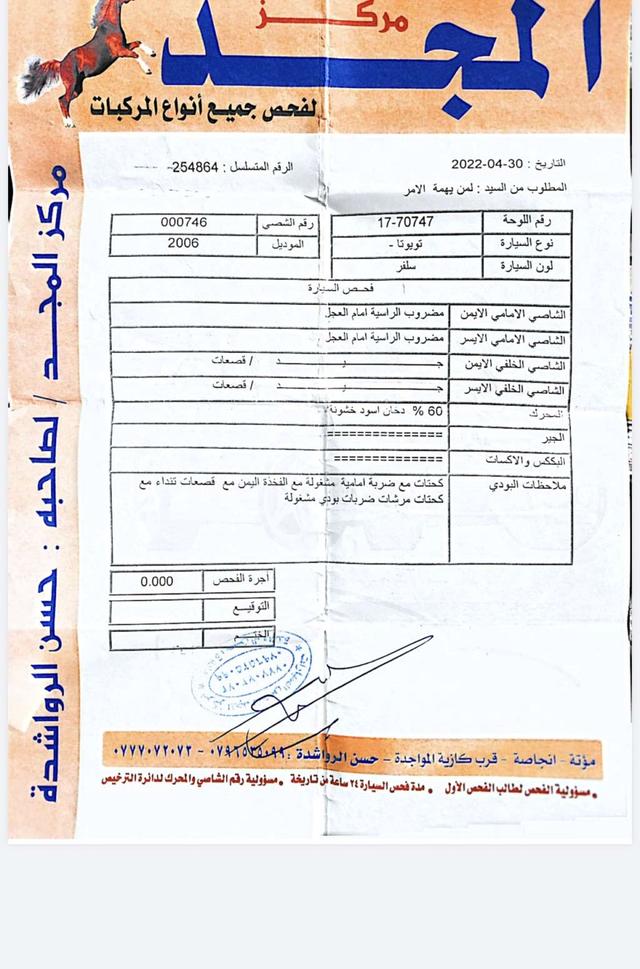 مركـــز
المجـــد
لفحص جميع أنواع المركبات
التاريخ : 30-04-2022
الرقم المتسلسل : 254864
المطلوب من السيد : لمن يهمة الامر
رقم اللوحة 17-70747 رقم الشصي 000746
نوع السيارة تويوتا - الموديل 2006
لون السيارة سلفر
فحص السيارة
الشاصي الامامي الايمن مضروب الراسية امام العجل
الشاصي الامامي الايسر مضروب الراسية امام العجل
الشاصي الخلفي الايمن جـــــــيـــــــد / قصعات
الشاصي الخلفي الايسر جـــــــيـــــــد / قصعات
المحرك 60 % دخان اسود خشونة
الجير ===============
البككس والاكسات ==============
ملاحظات البودي كحتات مع ضربة امامية مشغولة مع الفخذة اليمن مع قصعات تنداء مع
كحتات مرشات ضربات بودي مشغولة
اجرة الفحص 0.000
التوقيع
الختم
مركز المجـــد / لصاحبه : حسن الرواشدة
مؤتة - انجاصة - قرب كازية المواجدة - حسن الرواشدة : ٠٧٩٦٥٢٥٠٩٩ - ٠٧٧٧٠٧٢٠٧٢
• مسؤولية الفحص لطالب الفحص الأول • مدة فحص السيارة ٢٤ ساعة من تاريخة • مسؤولية رقم الشاصي والمحرك لدائرة الترخيص